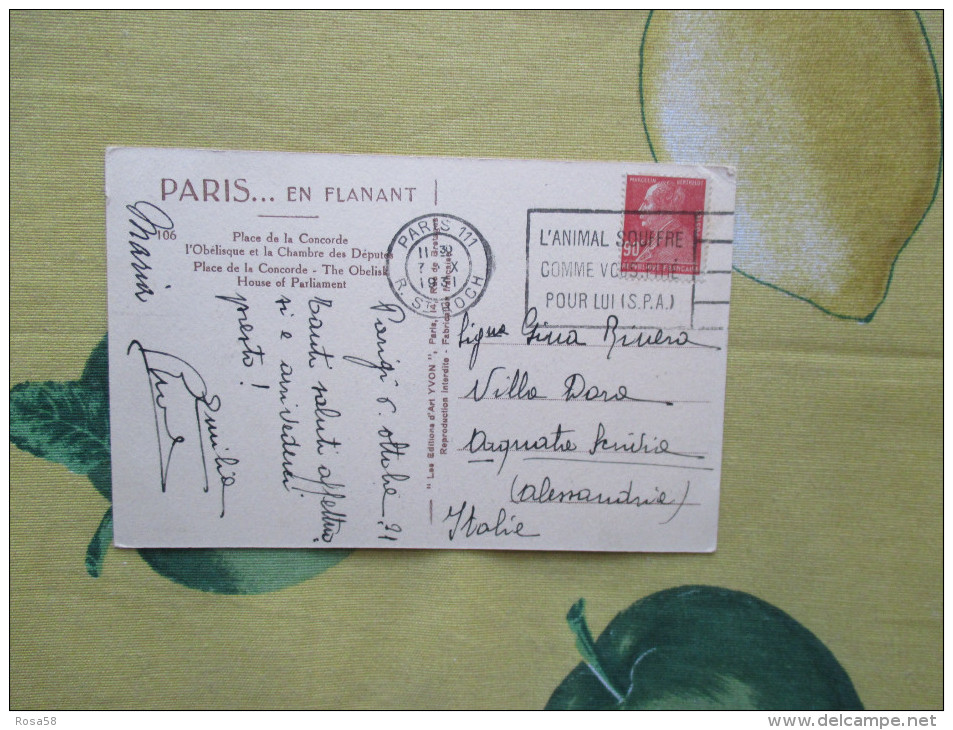 PARIS... EN FLANANT
106
Place de la Concorde
l'Obélisque et la Chambre des Députés
Place de la Concorde - The Obelisk
House of Parliament
Parigi 6. ottobre .
Tanti saluti affettuo
si e arrivederci
presto!
Emilia
Maria
" Les Editions d'Art YVON ", Paris, Rue de Bretagne
Reproduction Interdite - Fabrication française
PARIS 111
11 30
7 X
R. ST ROCH
MARCELIN BERTHELOT
90
REPUBLIQUE FRANCAISE
L'ANIMAL SOUFFRE
COMME VOUS. PITIÉ
POUR LUI (S.P.A.)
Sigra Gina Rivera
Villa Dora
Arquata Scrivia
(Alessandria)
Italie
Rosa58
www.delcampe.net